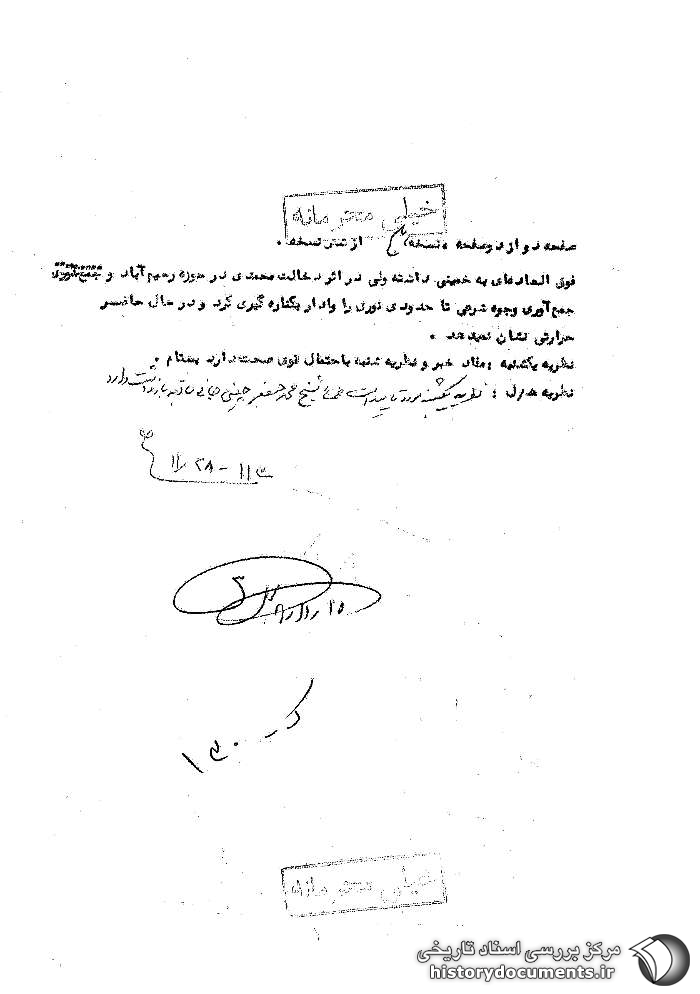 خیلی محرمانه
صفحه دو از دو صفحه نسخه از شش نسخه .
فوق العاده‌ای به خمینی داشته ولی در اثر دخالت محمدی در حوزه رحیم آباد و
جمع‌آوری وجوه شرعی تا حدودی نوری را وادار بکناره گیری کرد و در حال حاضر
حرارتی نشان نمیدهد .
نظریه یکشنبه : مفاد خبر و نظریه شنبه باحتمال قوی صحت دارد بسنام .
نظریه : نظریه یکشنبه مورد تایید است شیخ محمد جعفر سابقه بازداشت دارد
۲۸
۱۳۰
خیلی محرمانه
مرکز بررسی اسناد تاریخی
historydocuments.ir